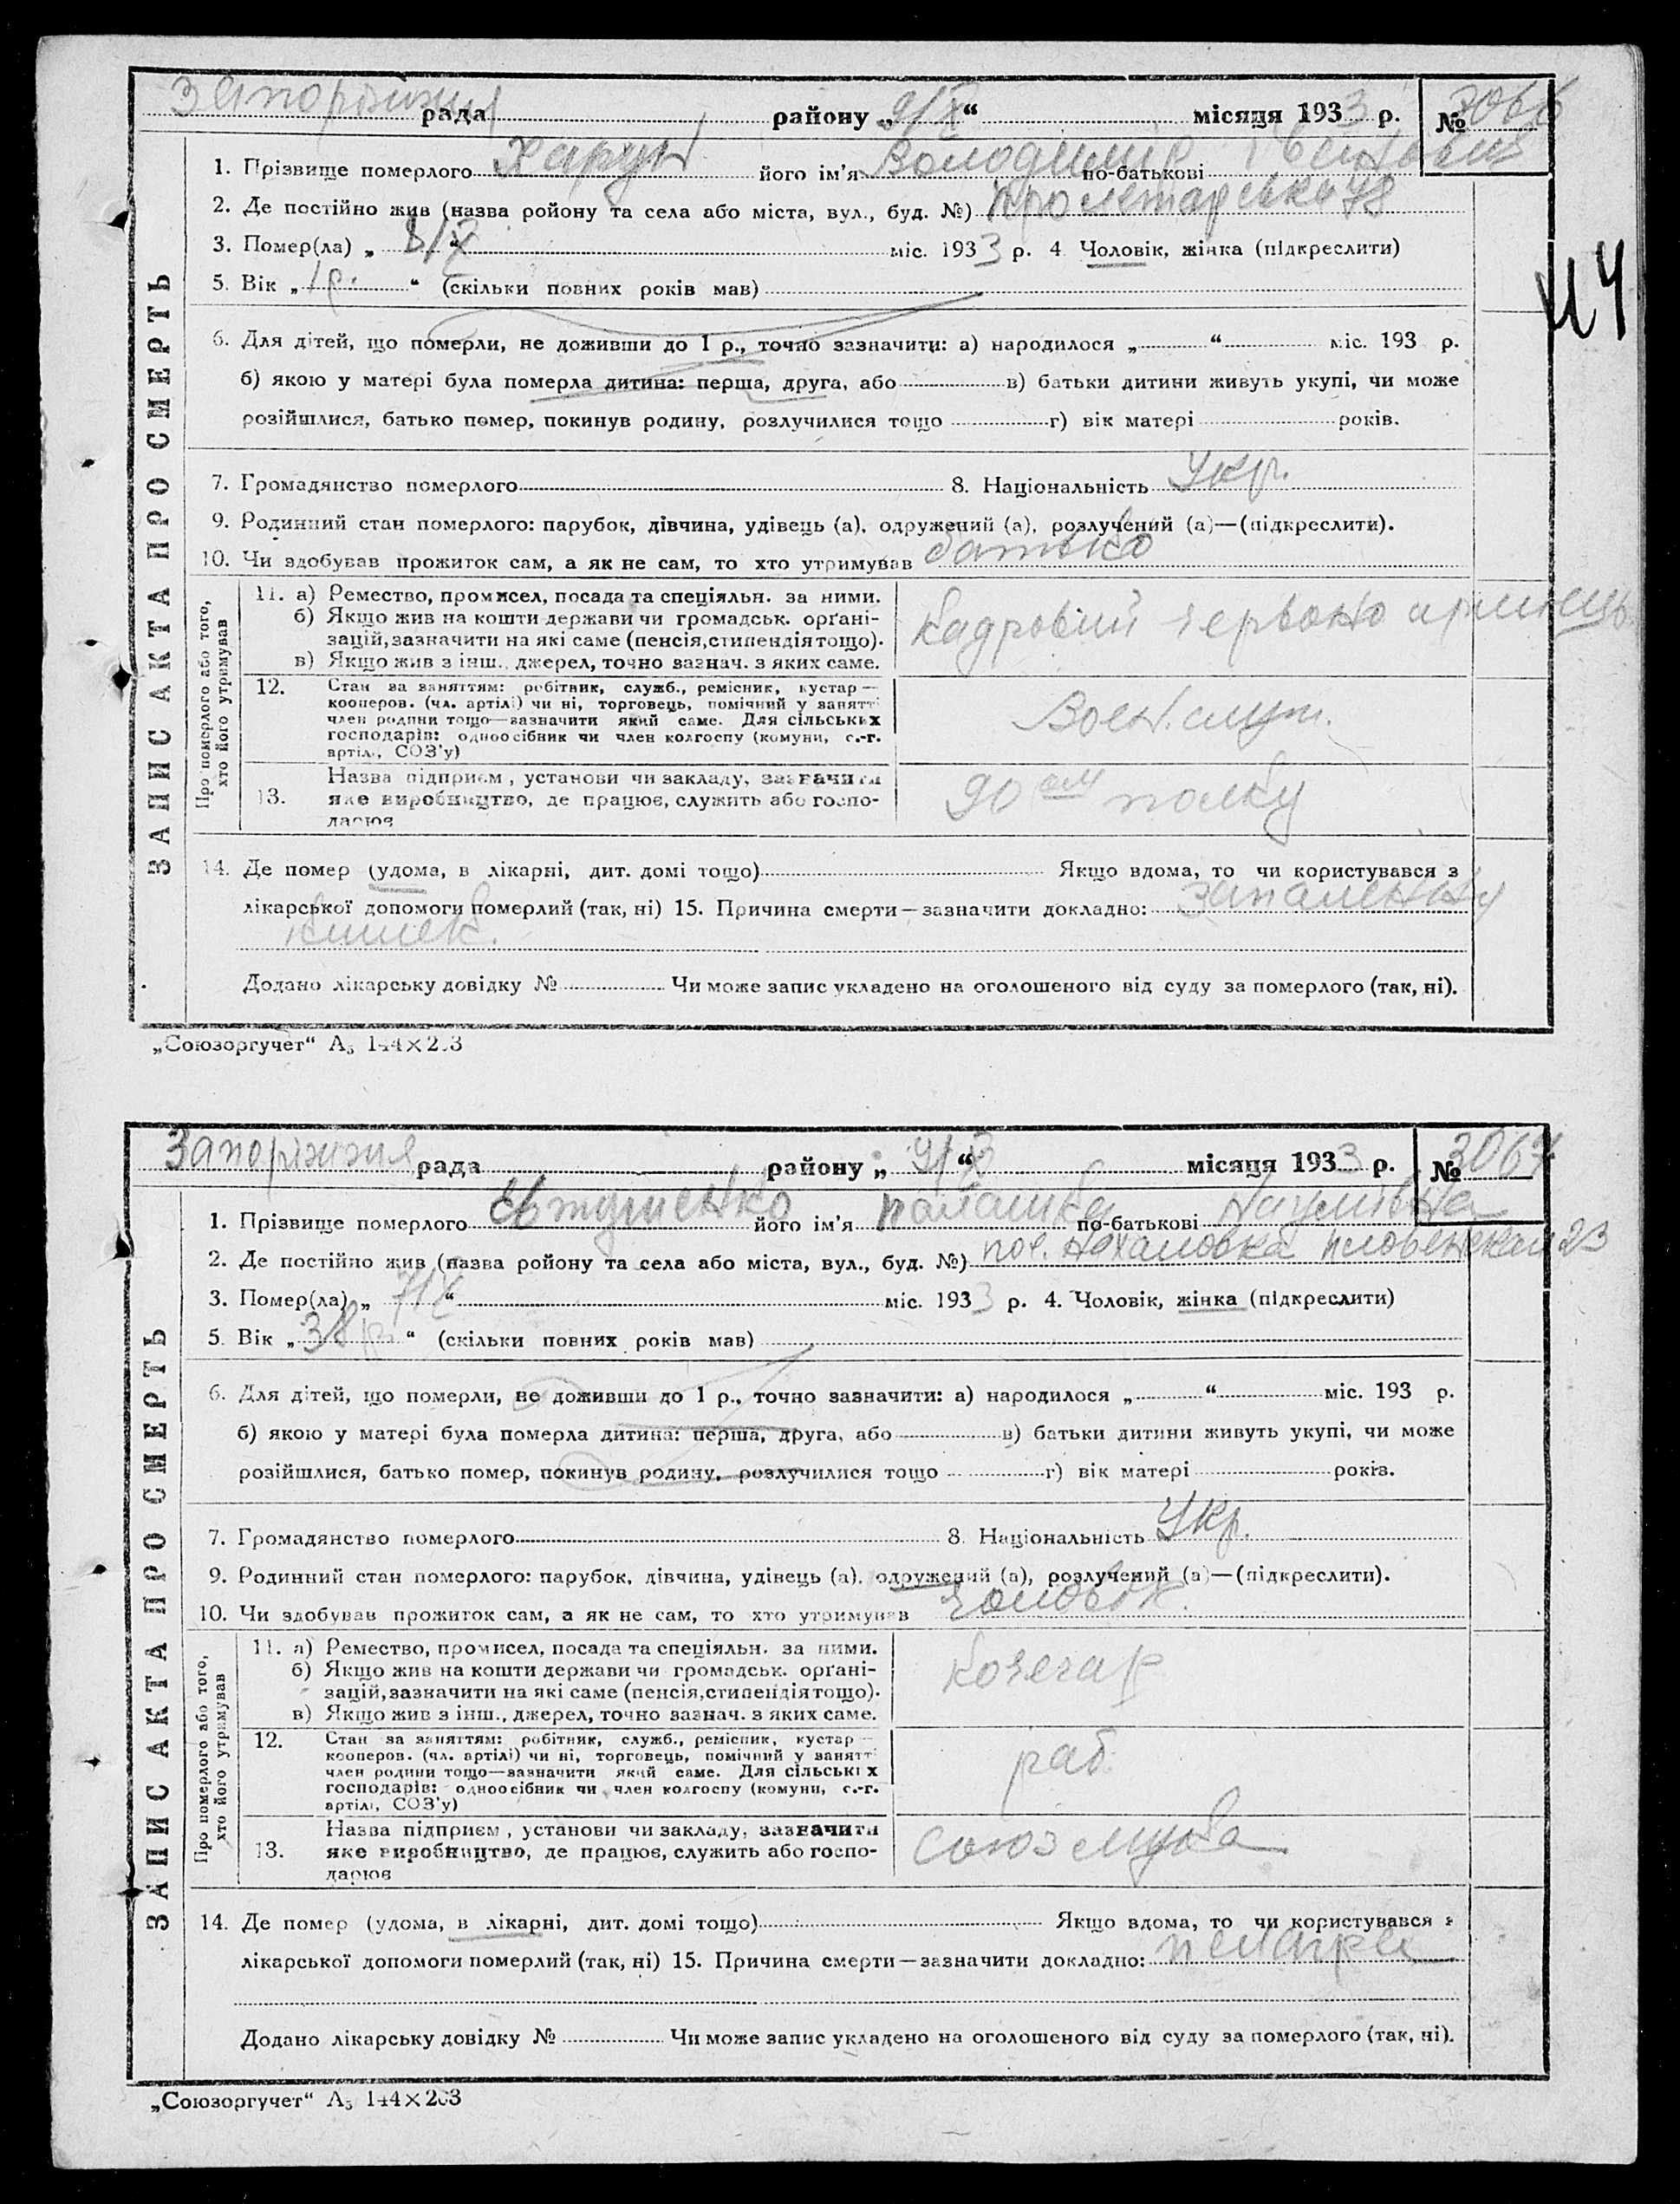 Запоріжжя рада района „9/X“ місяця 1933 р. № 3066
1. Прізвище померлого Харун його ім'я Володимир по-батькові
2. Де постійно жив (назва ройону та села або міста, вул., буд. №) Пролетарська 78
3. Помер(ла) „ 8/X “ міс. 1933 р. 4 Чоловік, жінка (підкреслити)
5. Вік „ 1 р. “ (скільки повних років мав)
6. Для дітей, що померли, не доживши до 1 р., точно зазначити: а) народилося „ “ міс. 193 р.
б) якою у матері була померла дитина: перша, друга, або в) батьки дитини живуть укупі, чи може
розійшлися, батько помер, покинув родину, розлучилися тощо г) вік матері років.
7. Громадянство померлого 8. Національність Укр.
9. Родинний стан померлого: парубок, дівчина, удівець (а), одружений (а), розлучений (а)—(підкреслити).
10. Чи здобував прожиток сам, а як не сам, то хто утримував батько
ЗАПИС АКТА ПРО СМЕРТЬ
Про померлого або того,
хто його утримував
11. а) Ремество, промисел, посада та спеціяльн. за ними.
б) Якщо жив на кошти держави чи громадськ. орґані-
зацій, зазначити на які саме (пенсія, стипендія тощо).
в) Якщо жив з інш., джерел, точно зазнач. з яких саме.
Кадровий червоно армиець
12. Стан за заняттям: робітник, служб., ремісник, кустар —
кооперов. (чл. артілі) чи ні, торговець, помічний у занятті
член родини тощо—зазначити який саме. Для сільських
господарів: одноосібник чи член колгоспу (комуни, с.-г.
артілі, СОЗ'у)
Воен. служ.
13. Назва підприєм, установи чи закладу, зазначити
яке виробництво, де працює, служить або госпо-
дарює
90 ом полку
14. Де помер (удома, в лікарні, дит. домі тощо) Якщо вдома, то чи користувався з
лікарської допомоги померлий (так, ні) 15. Причина смерти—зазначити докладно: запалення
кишек.
Додано лікарську довідку № Чи може запис укладено на оголошеного від суду за померлого (так, ні).
„Союзоргучет“ А₅ 144×203
И 4
Запоріжжя рада району „ 9/X “ місяця 1933 р. № 3067
1. Прізвище померлого Євтушенко його ім'я Палашка по-батькові Наумівна
2. Де постійно жив (назва ройону та села або міста, вул., буд. №) пос. Нахаловка 23
3. Помер(ла) „ 7/X “ міс. 1933 р. 4. Чоловік, жінка (підкреслити)
5. Вік „ 38 р. “ (скільки повних років мав)
6. Для дітей, що померли, не доживши до 1 р., точно зазначити: а) народилося „ “ міс. 193 р.
б) якою у матері була померла дитина: перша, друга, або в) батьки дитини живуть укупі, чи може
розійшлися, батько помер, покинув родину, розлучилися тощо г) вік матері років.
7. Громадянство померлого 8. Національність Укр.
9. Родинний стан померлого: парубок, дівчина, удівець (а), одружений (а), розлучений (а)—(підкреслити).
10. Чи здобував прожиток сам, а як не сам, то хто утримував чоловік.
ЗАПИС АКТА ПРО СМЕРТЬ
Про померлого або того,
хто його утримував
11. а) Ремество, промисел, посада та спеціяльн. за ними.
б) Якщо жив на кошти держави чи громадськ. орґані-
зацій, зазначити на які саме (пенсія, стипендія тощо).
в) Якщо жив з інш., джерел, точно зазнач. з яких саме.
Кочегар
12. Стан за заняттям: робітник, служб., ремісник, кустар —
кооперов. (чл. артілі) чи ні, торговець, помічний у занятті
член родини тощо—зазначити який саме. Для сільських
господарів: одноосібник чи член колгоспу (комуни, с.-г.
артілі, СОЗ'у)
раб.
13. Назва підприєм, установи чи закладу, зазначити
яке виробництво, де працює, служить або госпо-
дарює
14. Де помер (удома, в лікарні, дит. домі тощо) Якщо вдома, то чи користувався з
лікарської допомоги померлий (так, ні) 15. Причина смерти—зазначити докладно: пелагра
Додано лікарську довідку № Чи може запис укладено на оголошеного від суду за померлого (так, ні).
„Союзоргучет“ А₅ 144×203